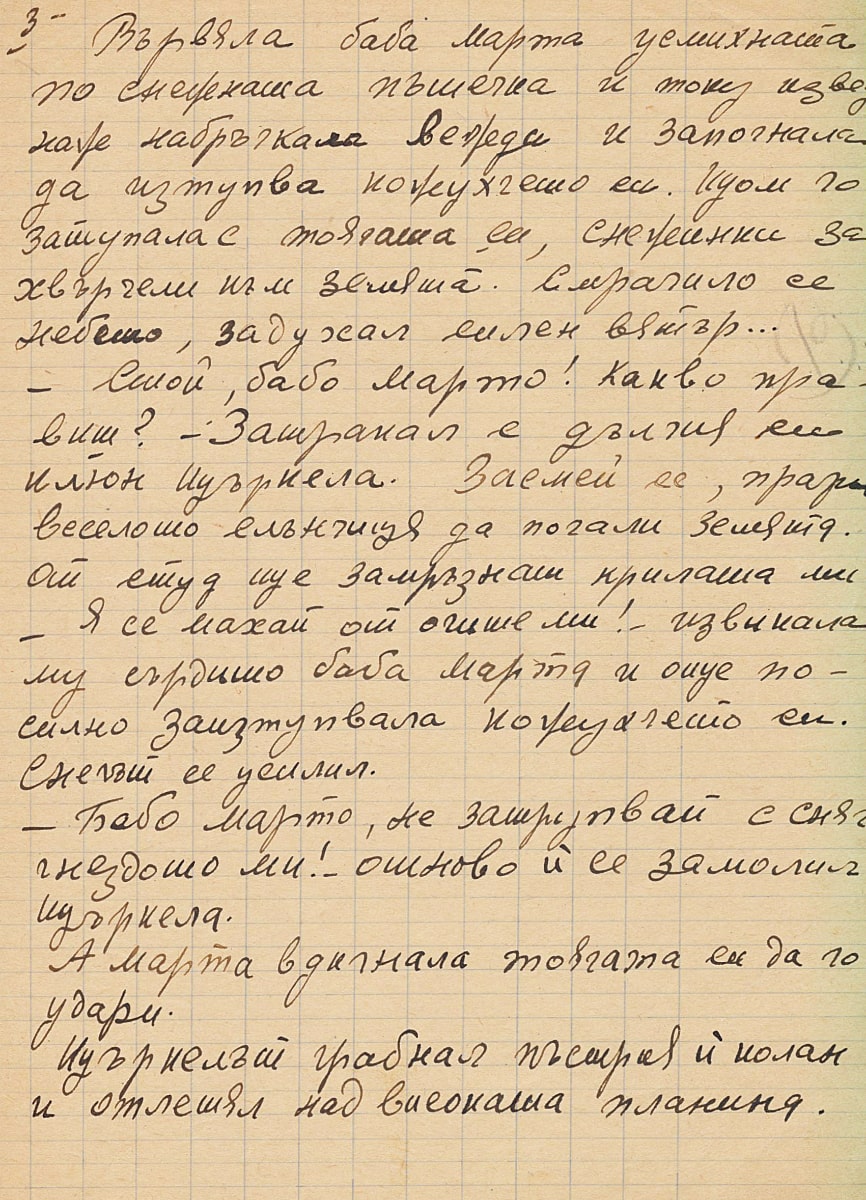 3-
Вървяла баба Марта усмихната
по снежната пътечка и току извед
наж набръчкала вежди и започнала
да изтупва кожухчето си. Щом го
затупала с тоягата си, снежинки за
хвърчели към земята. Смрачило се
небето, задухал силен вятър...
– Стой, бабо Марто! Какво пра-
виш? – Затракал с дългия си
клюн щъркела. Засмей се, прати
веселото слънчице да погали земята.
От студ ще замръзнат крилата ми
– Я се махай от очите ми! – извикала
му сърдито баба Марта и още по-
силно заизтупвала кожухчето си.
Снегът се усилил.
– Бабо Марто, не затрупвай с сняг
гнездото ми! – отново ѝ се замолил
щъркела.
А Марта вдигнала тоягата си да го
удари.
Щъркелът грабнал пъстрия ѝ колан
и отлетял над високата планина.